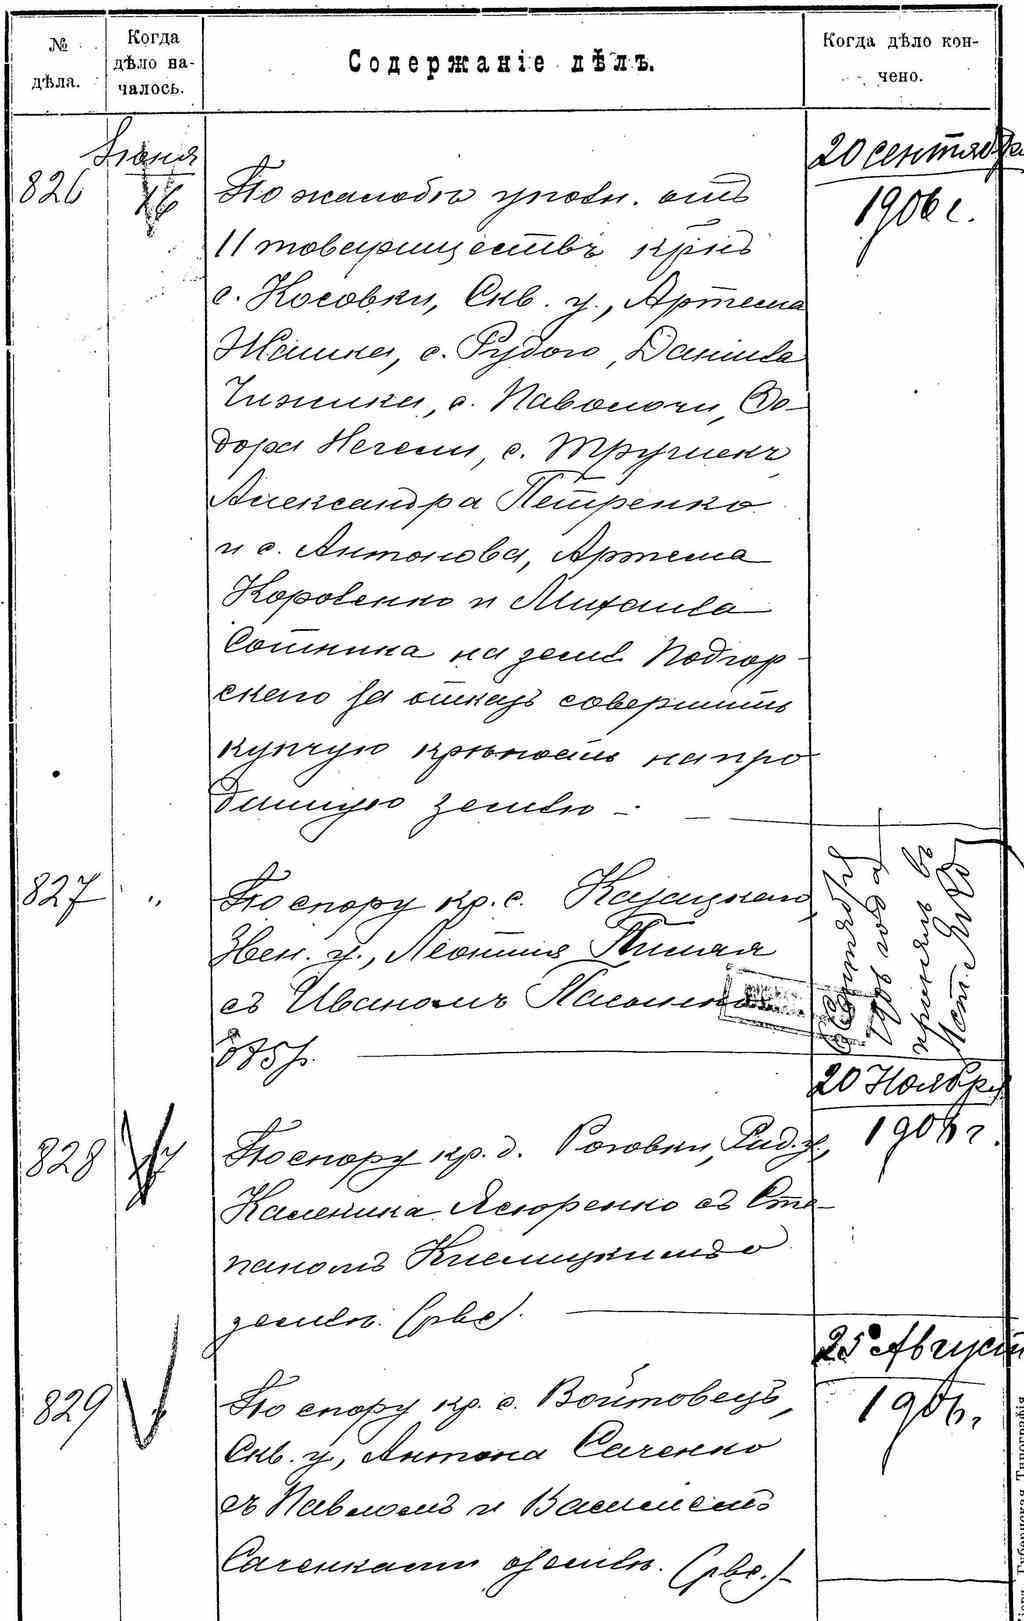 № дѣла.
Когда дѣло на-
чалось.
Содержаніе дѣлъ.
Когда дѣло кон-
чено.
Іюня
826
16
По жалобѣ уполн. отъ
11 товариществъ крнъ
с. Косовки, Скв. у., Артема
Жашка, с. Рудого, Даніила
Чижика, с. Паволочи, Ѳо-
дора Негели, с. Тругиекъ
Александра Петренко
и с. Антонова, Артема
Коровенко и Михаила
Сотника на землев. Подгор-
скаго за отказъ совершить
купчую крѣпость на про
данную землю —
20 сентября
1906 г.
827
"
По спору кр. с. Казацкаго,
Звен. у., Леонтія
съ Иваномъ
Сентября
1906 года
принялъ въ
828
17
По спору кр. д. Роговки, Рад. у.,
Каленика Ясюренко съ Сте-
паномъ Кнелицкимъ о
землѣ. (рвс).
20 Ноября
1906 г.
829
"
По спору кр. с. Войтовецъ,
Скв. у., Антона Саченко
съ Павломъ и Василіемъ
Саченками о землѣ. (рвс.)-
25 Август
1906 г.
Губернская Типографія